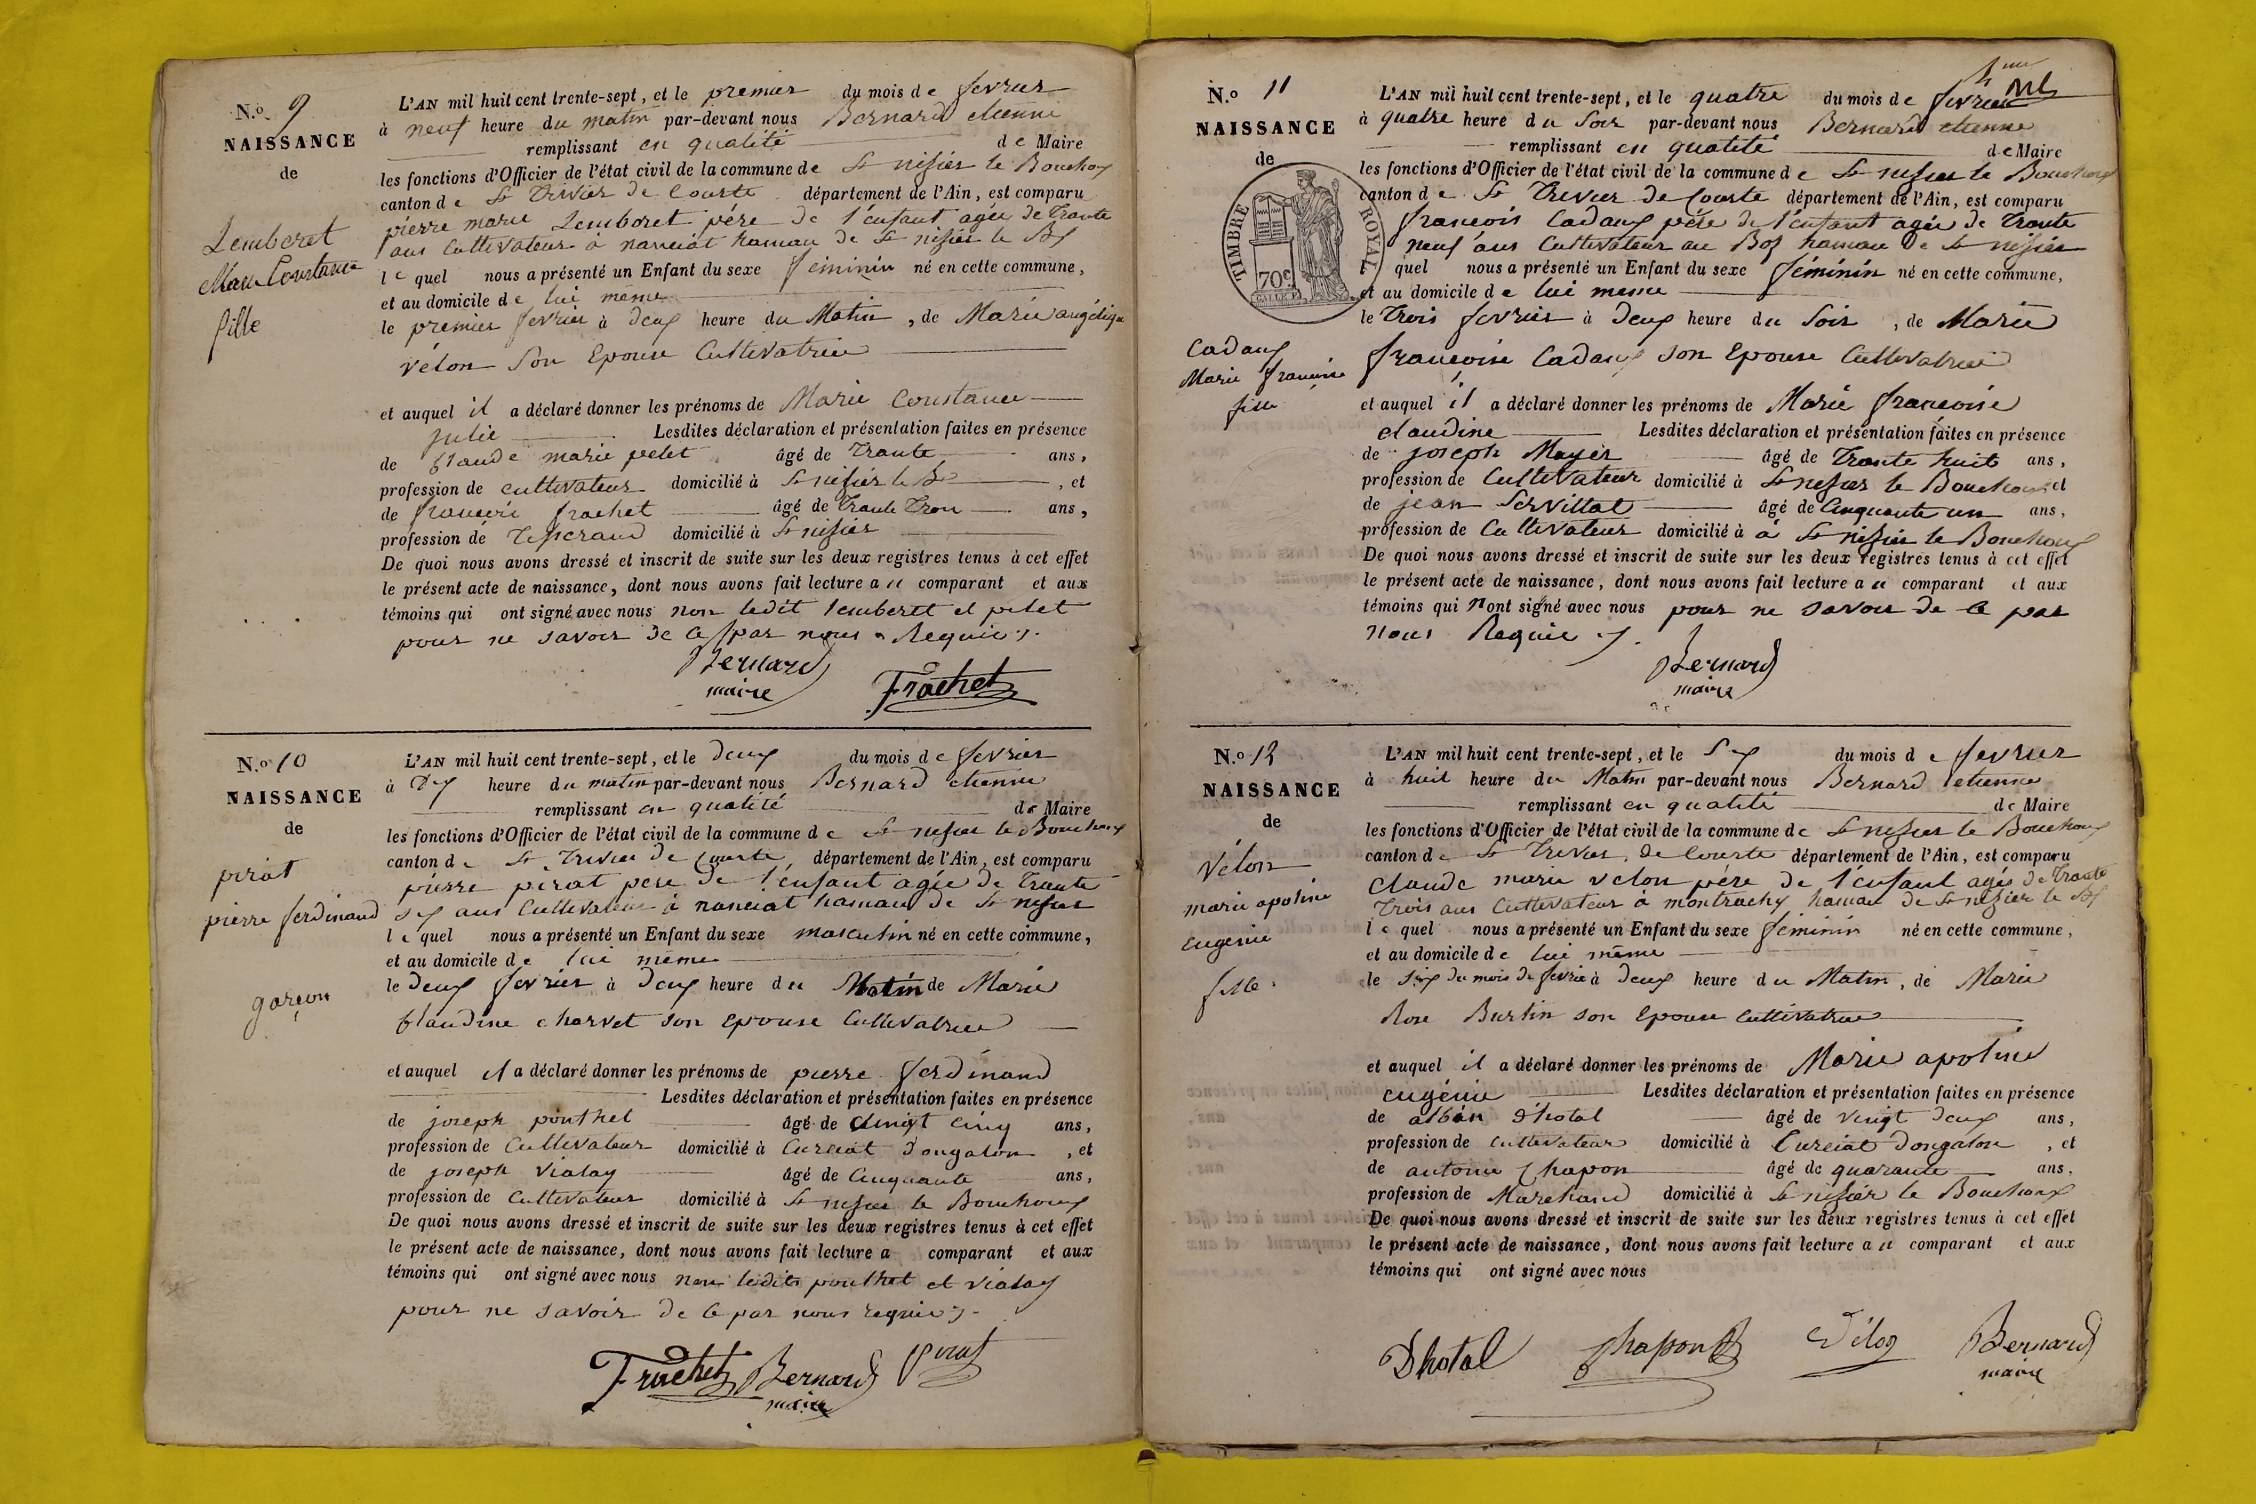 N.o 9
NAISSANCE
de
Lemberet
Marie Constance
fille
L'AN mil huit cent trente-sept, et le premier du mois de fevrier
à neuf heure du matin par-devant nous Bernard etienne
remplissant en qualité de Maire
les fonctions d'Officier de l'état civil de la commune de St nisier le Bouchoux
canton de St Trivier de Courte département de l'Ain, est comparu
pierre marie Lemboret pére de l'enfant agée de Trante
ans Cultivateur a nanciat hamau de St nisiér le Bx
le quel nous a présenté un Enfant du sexe féminin né en cette commune,
et au domicile de lui même
le premier fevrier à deux heure du Matin, de Marie angélique
vélon Son Epouse Cultivatrice
et auquel il a déclaré donner les prénoms de Marie Constance
julie Lesdites déclaration et présentation faites en présence
de Claude marie pelet âgé de Trante ans,
profession de cultivateur domicilié à St nisiér le B , et
de francois frachet âgé de Trante Troi ans,
profession de Tisserand domicilié à St nisiér
De quoi nous avons dressé et inscrit de suite sur les deux registres tenus à cet effet
le présent acte de naissance, dont nous avons fait lecture au comparant et aux
témoins qui ont signé avec nous non ledit lemberet et pelet
pour ne savoir de ce par nous Requis
Bernard
maire
Frachet
N.o 10
NAISSANCE
de
pirat
pierre ferdinand
garçon
L'AN mil huit cent trente-sept, et le deux du mois de fevrier
à Dix heure du matin par-devant nous Bernard etienne
remplissant en qualité de Maire
les fonctions d'Officier de l'état civil de la commune de St nisier le Bouchoux
canton de St Trivier de Courte, département de l'Ain, est comparu
pierre pirat pere de l'enfant agée de Trante
six ans Cultivateur à nanciat hamau de St nisier
le quel nous a présenté un Enfant du sexe masculin né en cette commune,
et au domicile de lui même
le deux fevrier à deux heure du Matin de Marie
Claudine charvet son epouse Cultivatrice
et auquel il a déclaré donner les prénoms de pierre ferdinand
Lesdites déclaration et présentation faites en présence
de joseph pouthet âgé de vingt cinq ans,
profession de Cultivateur domicilié à Curciat dongalon , et
de joseph vialay âgé de Cinquante ans,
profession de Cultivateur domicilié à St nisier le Bouchoux
De quoi nous avons dressé et inscrit de suite sur les deux registres tenus à cet effet
le présent acte de naissance, dont nous avons fait lecture a comparant et aux
témoins qui ont signé avec nous non ledits pouthet et vialay
pour ne savoir de ce par nous requis
Frachet Bernard Pirat
maire
N.o 11
NAISSANCE
de
TIMBRE ROYAL
70c
Cadaux
Marie francoise
fille
L'AN mil huit cent trente-sept, et le quatre du mois de fevrier
à quatre heure du Soir par-devant nous Bernard etienne
remplissant en qualité de Maire
les fonctions d'Officier de l'état civil de la commune de St nisier le Bouchoux
canton de St Trivier de Courte département de l'Ain, est comparu
francois Cadaux pére de l'enfant agée de Trante
neuf ans Cultivateur au Bos hamau de St nisiér
l quel nous a présenté un Enfant du sexe féminin né en cette commune,
et au domicile de lui meme
le Trois fevrier à Deux heure du Soir , de Marie
francoise Cadaux son Epouse Cultivatrice
et auquel il a déclaré donner les prénoms de Marie francoise
claudine Lesdites déclaration et présentation faites en présence
de joseph Mayér âgé de Trante huit ans,
profession de Cultivateur domicilié à St nisier le Bouchoux et
de jean Servillat âgé de Cinquante un ans,
profession de Cultivateur domicilié à à St nisiér le Bouchoux
De quoi nous avons dressé et inscrit de suite sur les deux registres tenus à cet effet
le présent acte de naissance, dont nous avons fait lecture au comparant et aux
témoins qui n'ont signé avec nous pour ne savoir de ce par
nous Requie
Bernard
maire
N.o 12
NAISSANCE
de
vélon
marie apoline
eugenie
fille
L'AN mil huit cent trente-sept, et le Six du mois de fevrier
à huit heure du Matin par-devant nous Bernard etienne
remplissant en qualité de Maire
les fonctions d'Officier de l'état civil de la commune de St nisier le Bouchoux
canton de St Trivier de Courte département de l'Ain, est comparu
Claude marie velon pére de l'enfant agée de Trante
Trois ans Cultivateur à montrachy hamau de St nizier le Bx
le quel nous a présenté un Enfant du sexe féminin né en cette commune,
et au domicile de lui même
le six du mois de fevrie à deux heure du Matin, de Marie
Rose Burtin son Epouse cultivatrice
et auquel il a déclaré donner les prénoms de Marie apoline
eugénie Lesdites déclaration et présentation faites en présence
de alban D'hotal âgé de vingt deux ans,
profession de cultivateur domicilié à Curciat Dongalon , et
de antoine Chapon âgé de quarante ans,
profession de Marchand domicilié à St nisiér le Bouchoux
De quoi nous avons dressé et inscrit de suite sur les deux registres tenus à cet effet
le présent acte de naissance, dont nous avons fait lecture au comparant et aux
témoins qui ont signé avec nous
Dhotal Chapon Vélon Bernard
maire